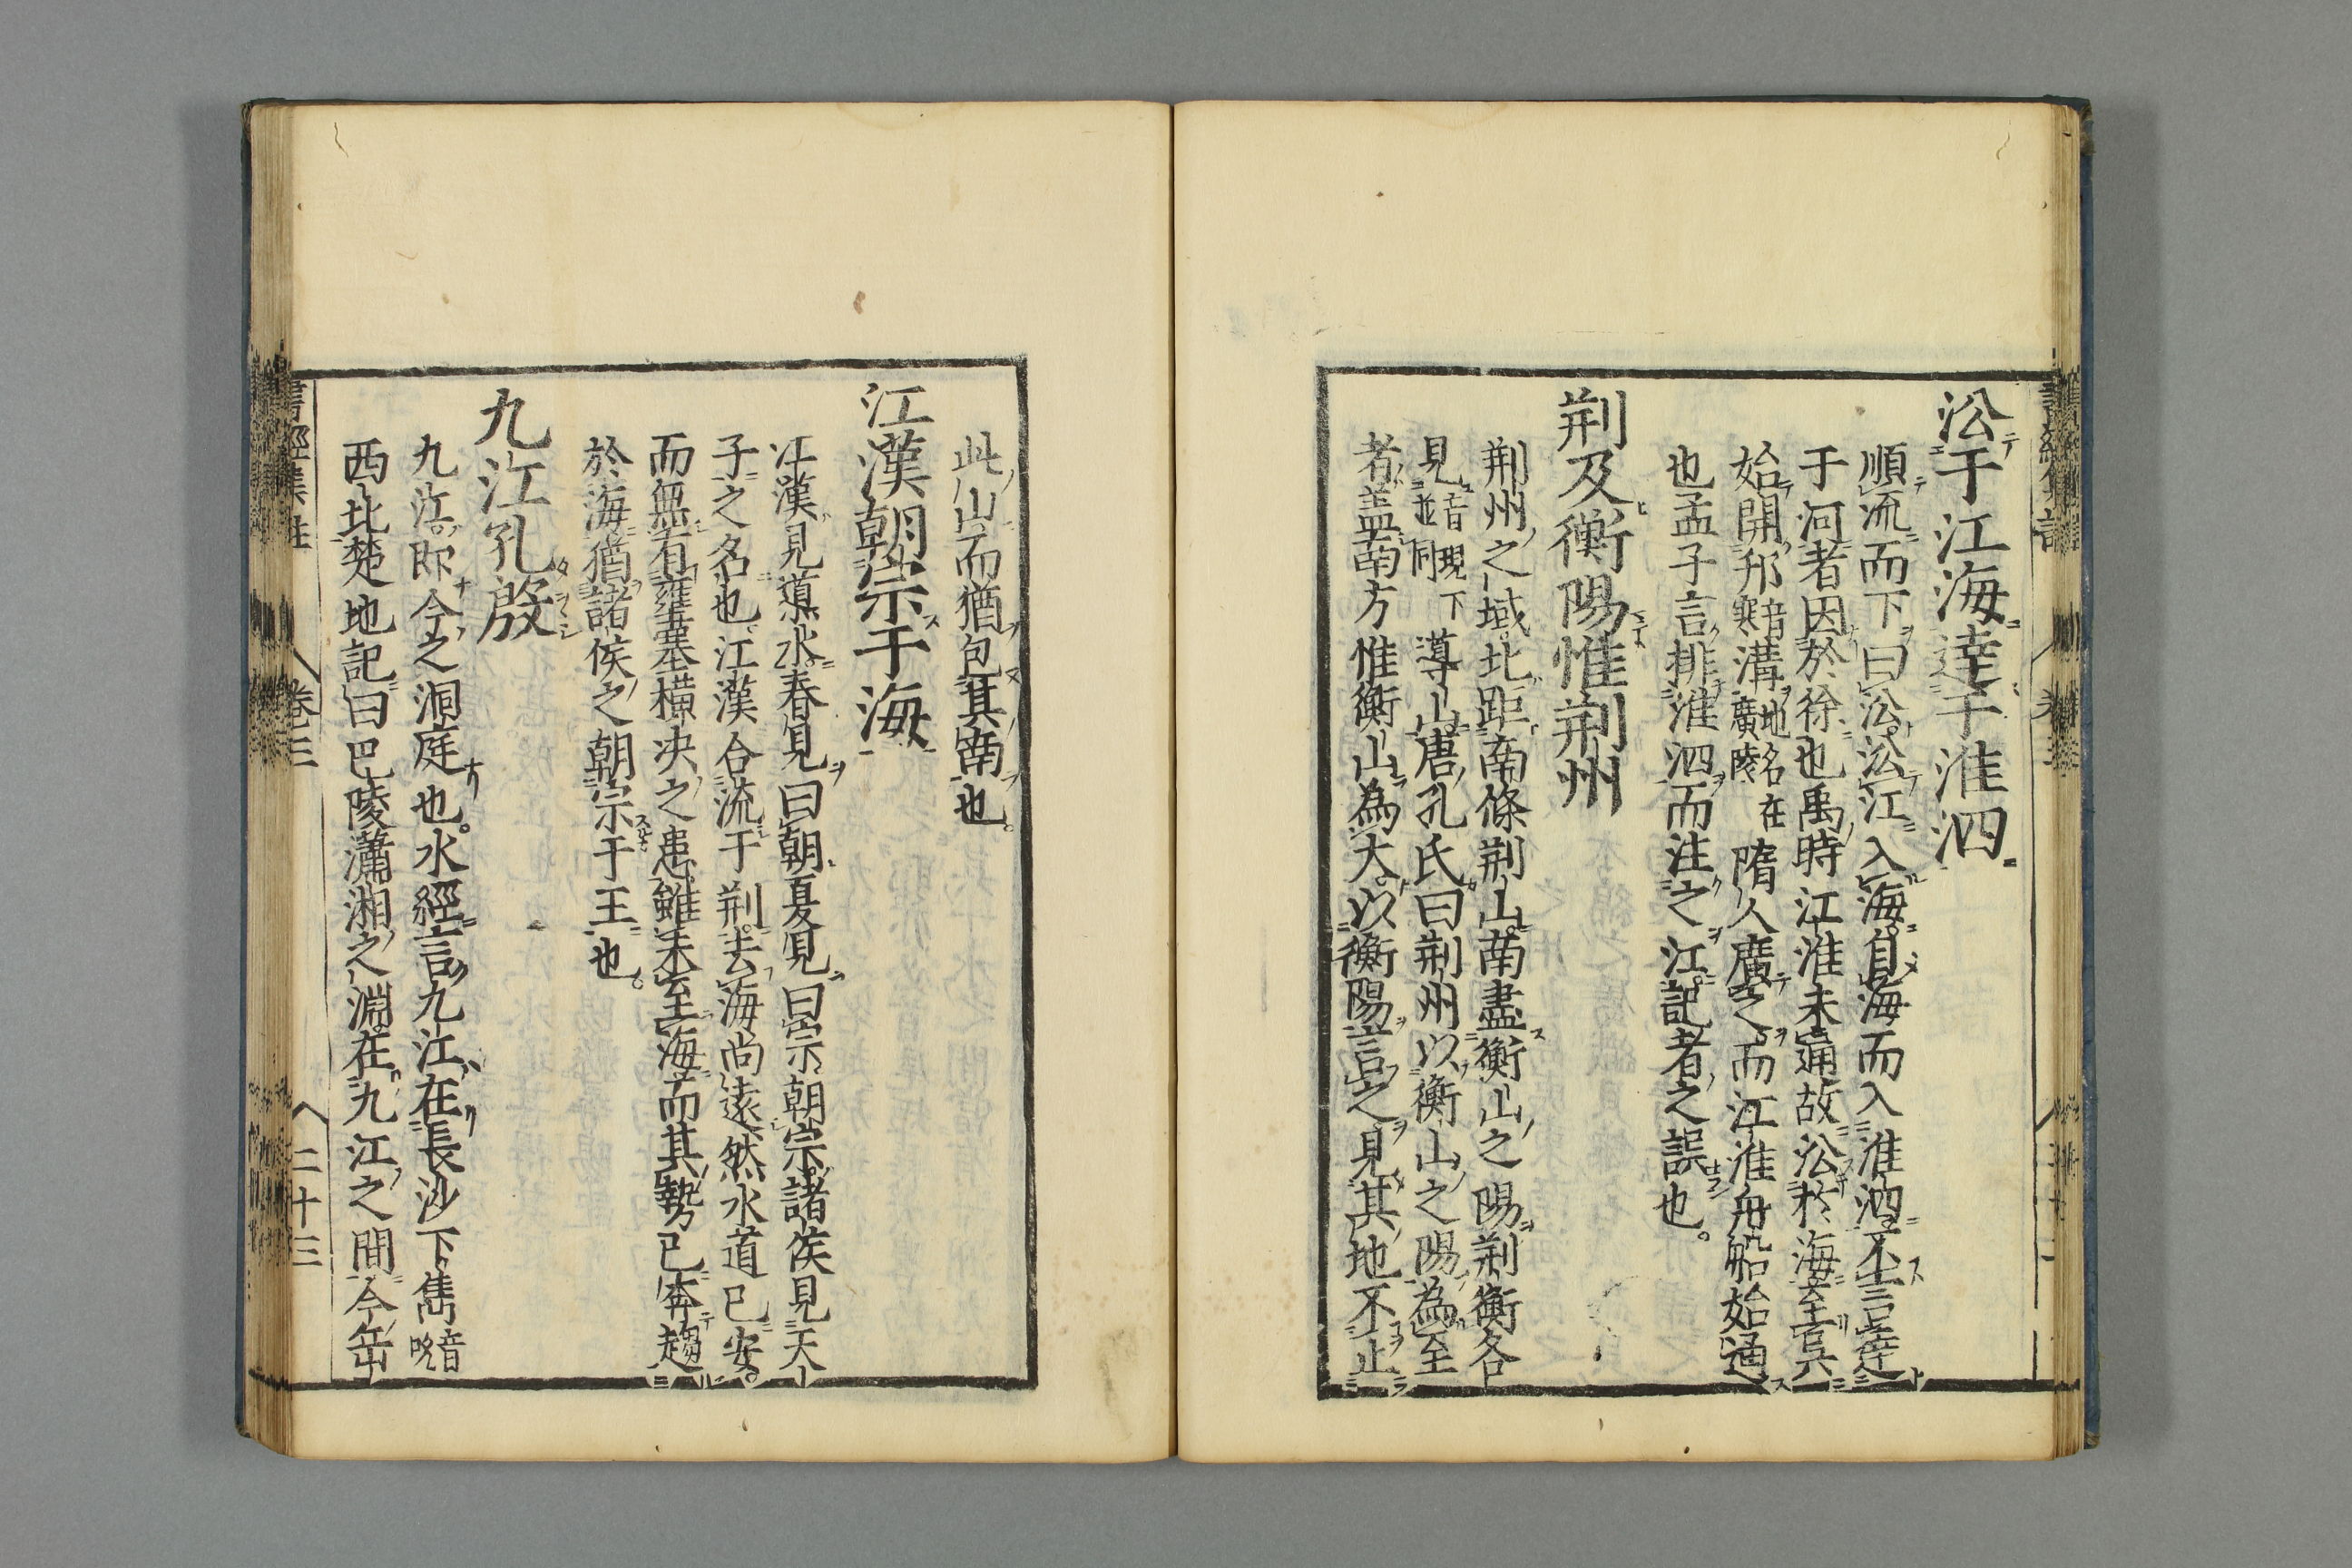 沿于江海達于淮泗
順流而下曰沿沿江入海自海而入淮泗不言達
于河者因於徐也禹時江淮未通故沿於海至吳
始開邗音寒溝地名在廣陵隋人廣之而江淮舟船始通
也孟子言排淮泗而注之江記者之誤也。
荊及衡陽惟荊州
荊州之域北距南條荊山南盡衡山之陽荊衡各
見音現下並同導山唐孔氏曰荊州以衡山之陽為至
者蓋南方惟衡山為大以衡陽言之見其地不止
此山而猶包其南也。
江漢朝宗于海
江漢見導水春見曰朝夏見曰宗朝宗諸侯見天
子之名也江漢合流于荊去海尚遠然水道已安。
而無有壅塞橫決之患雖未至海而其勢已奔趨
於海猶諸侯之朝宗于王也。
九江孔殷
九江即今之洞庭也。水經言九江在長沙下雋音吮
西北楚地記曰巴陵瀟湘之淵在九江之間今岳
書經集註 卷三 二十三